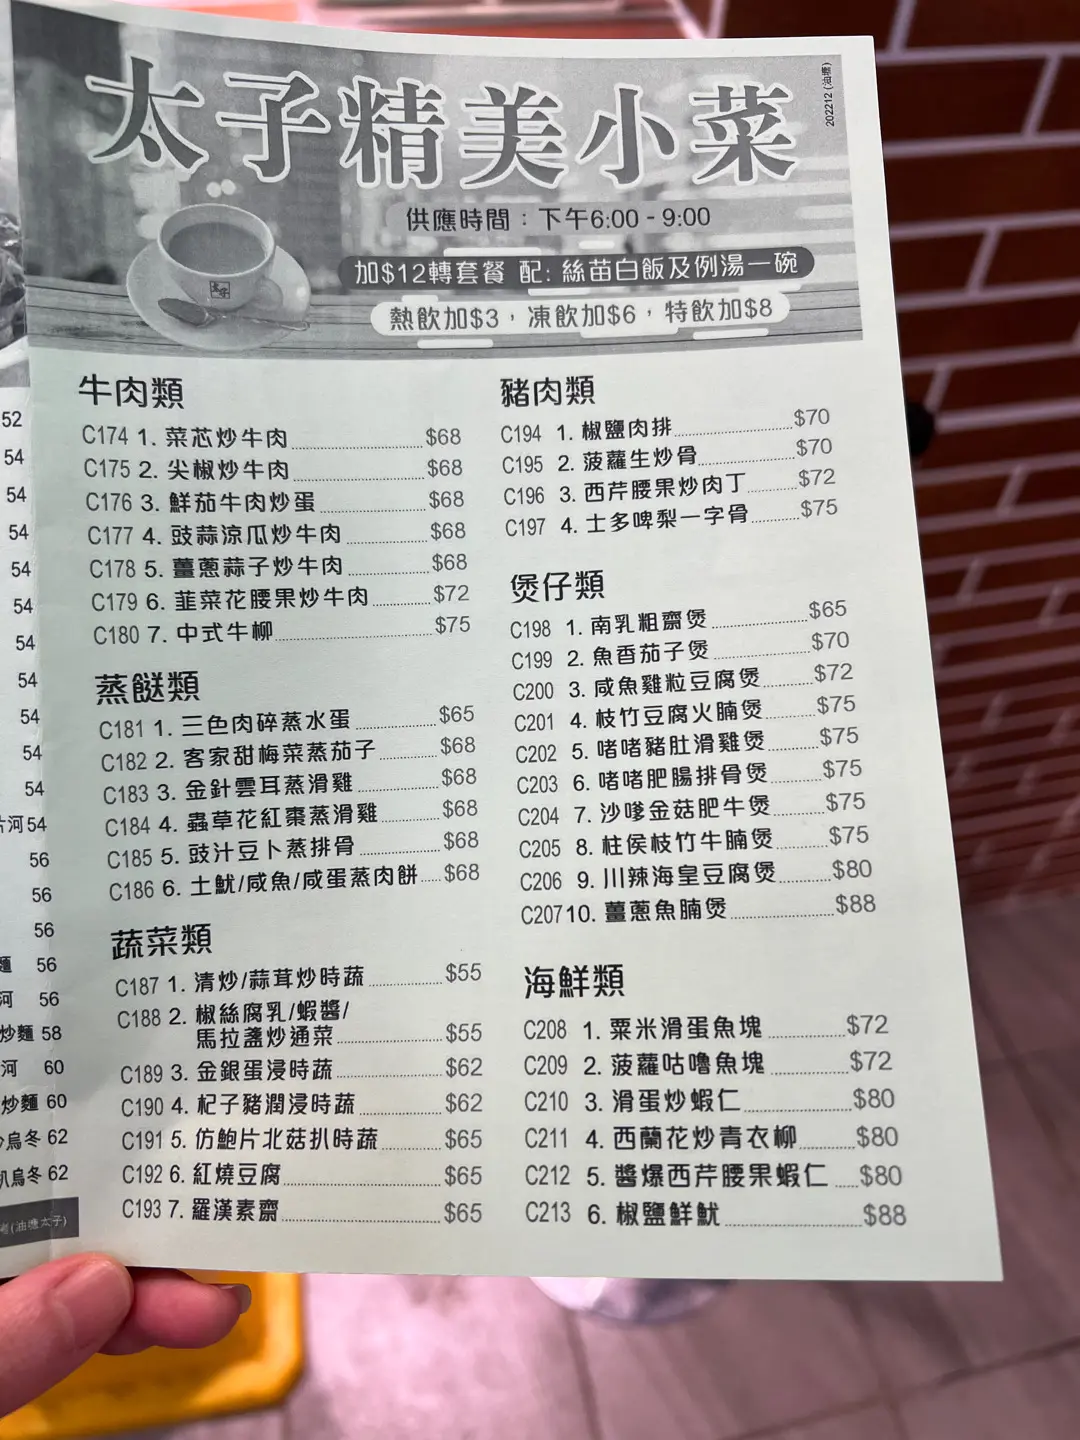 太子精美小菜
202212 (油塘)
供應時間：下午6:00 - 9:00
加$12轉套餐 配: 絲苗白飯及例湯一碗
熱飲加$3，凍飲加$6，特飲加$8
牛肉類
C174 1. 菜芯炒牛肉 $68
C175 2. 尖椒炒牛肉 $68
C176 3. 鮮茄牛肉炒蛋 $68
C177 4. 豉蒜涼瓜炒牛肉 $68
C178 5. 薑蔥蒜子炒牛肉 $68
C179 6. 韮菜花腰果炒牛肉 $72
C180 7. 中式牛柳 $75
蒸餸類
C181 1. 三色肉碎蒸水蛋 $65
C182 2. 客家甜梅菜蒸茄子 $68
C183 3. 金針雲耳蒸滑雞 $68
C184 4. 蟲草花紅棗蒸滑雞 $68
C185 5. 豉汁豆卜蒸排骨 $68
C186 6. 土魷/咸魚/咸蛋蒸肉餅 $68
蔬菜類
C187 1. 清炒/蒜茸炒時蔬 $55
C188 2. 椒絲腐乳/蝦醬/
馬拉盞炒通菜 $55
C189 3. 金銀蛋浸時蔬 $62
C190 4. 杞子豬潤浸時蔬 $62
C191 5. 仿鮑片北菇扒時蔬 $65
C192 6. 紅燒豆腐 $65
C193 7. 羅漢素齋 $65
豬肉類
C194 1. 椒鹽肉排 $70
C195 2. 菠蘿生炒骨 $70
C196 3. 西芹腰果炒肉丁 $72
C197 4. 士多啤梨一字骨 $75
煲仔類
C198 1. 南乳粗齋煲 $65
C199 2. 魚香茄子煲 $70
C200 3. 咸魚雞粒豆腐煲 $72
C201 4. 枝竹豆腐火腩煲 $75
C202 5. 啫啫豬肚滑雞煲 $75
C203 6. 啫啫肥腸排骨煲 $75
C204 7. 沙嗲金菇肥牛煲 $75
C205 8. 柱侯枝竹牛腩煲 $75
C206 9. 川辣海皇豆腐煲 $80
C207 10. 薑蔥魚腩煲 $88
海鮮類
C208 1. 粟米滑蛋魚塊 $72
C209 2. 菠蘿咕嚕魚塊 $72
C210 3. 滑蛋炒蝦仁 $80
C211 4. 西蘭花炒青衣柳 $80
C212 5. 醬爆西芹腰果蝦仁 $80
C213 6. 椒鹽鮮魷 $88
52
54
54
54
54
54
54
54
54
54
54
河54
56
56
56
麵 56
河 56
炒麵 58
河 60
炒麵 60
烏冬 62
扒烏冬 62
(油塘太子)